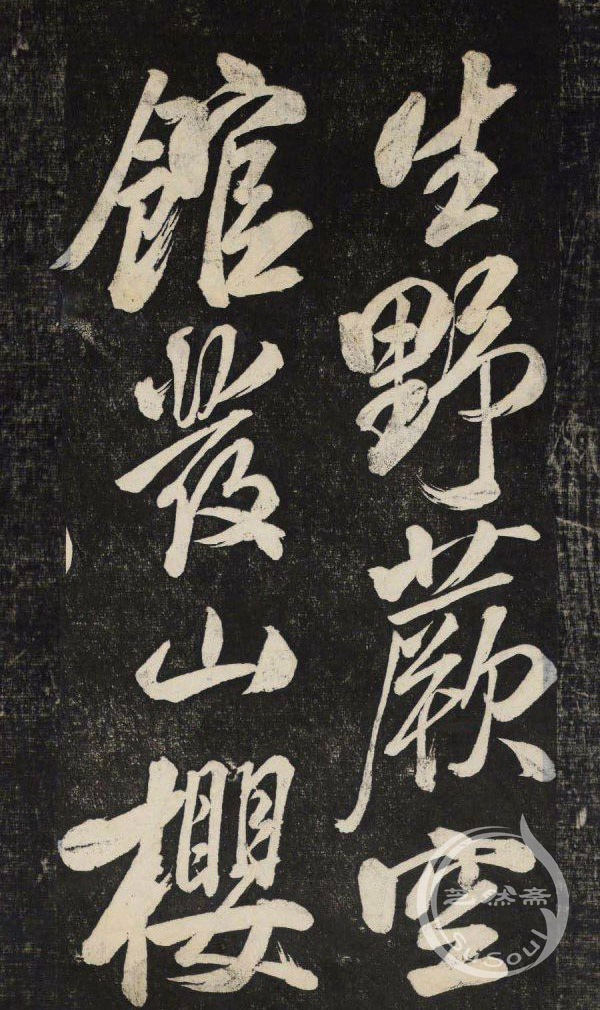 生野蕨空
館發山櫻
芝然斋
SuSoul